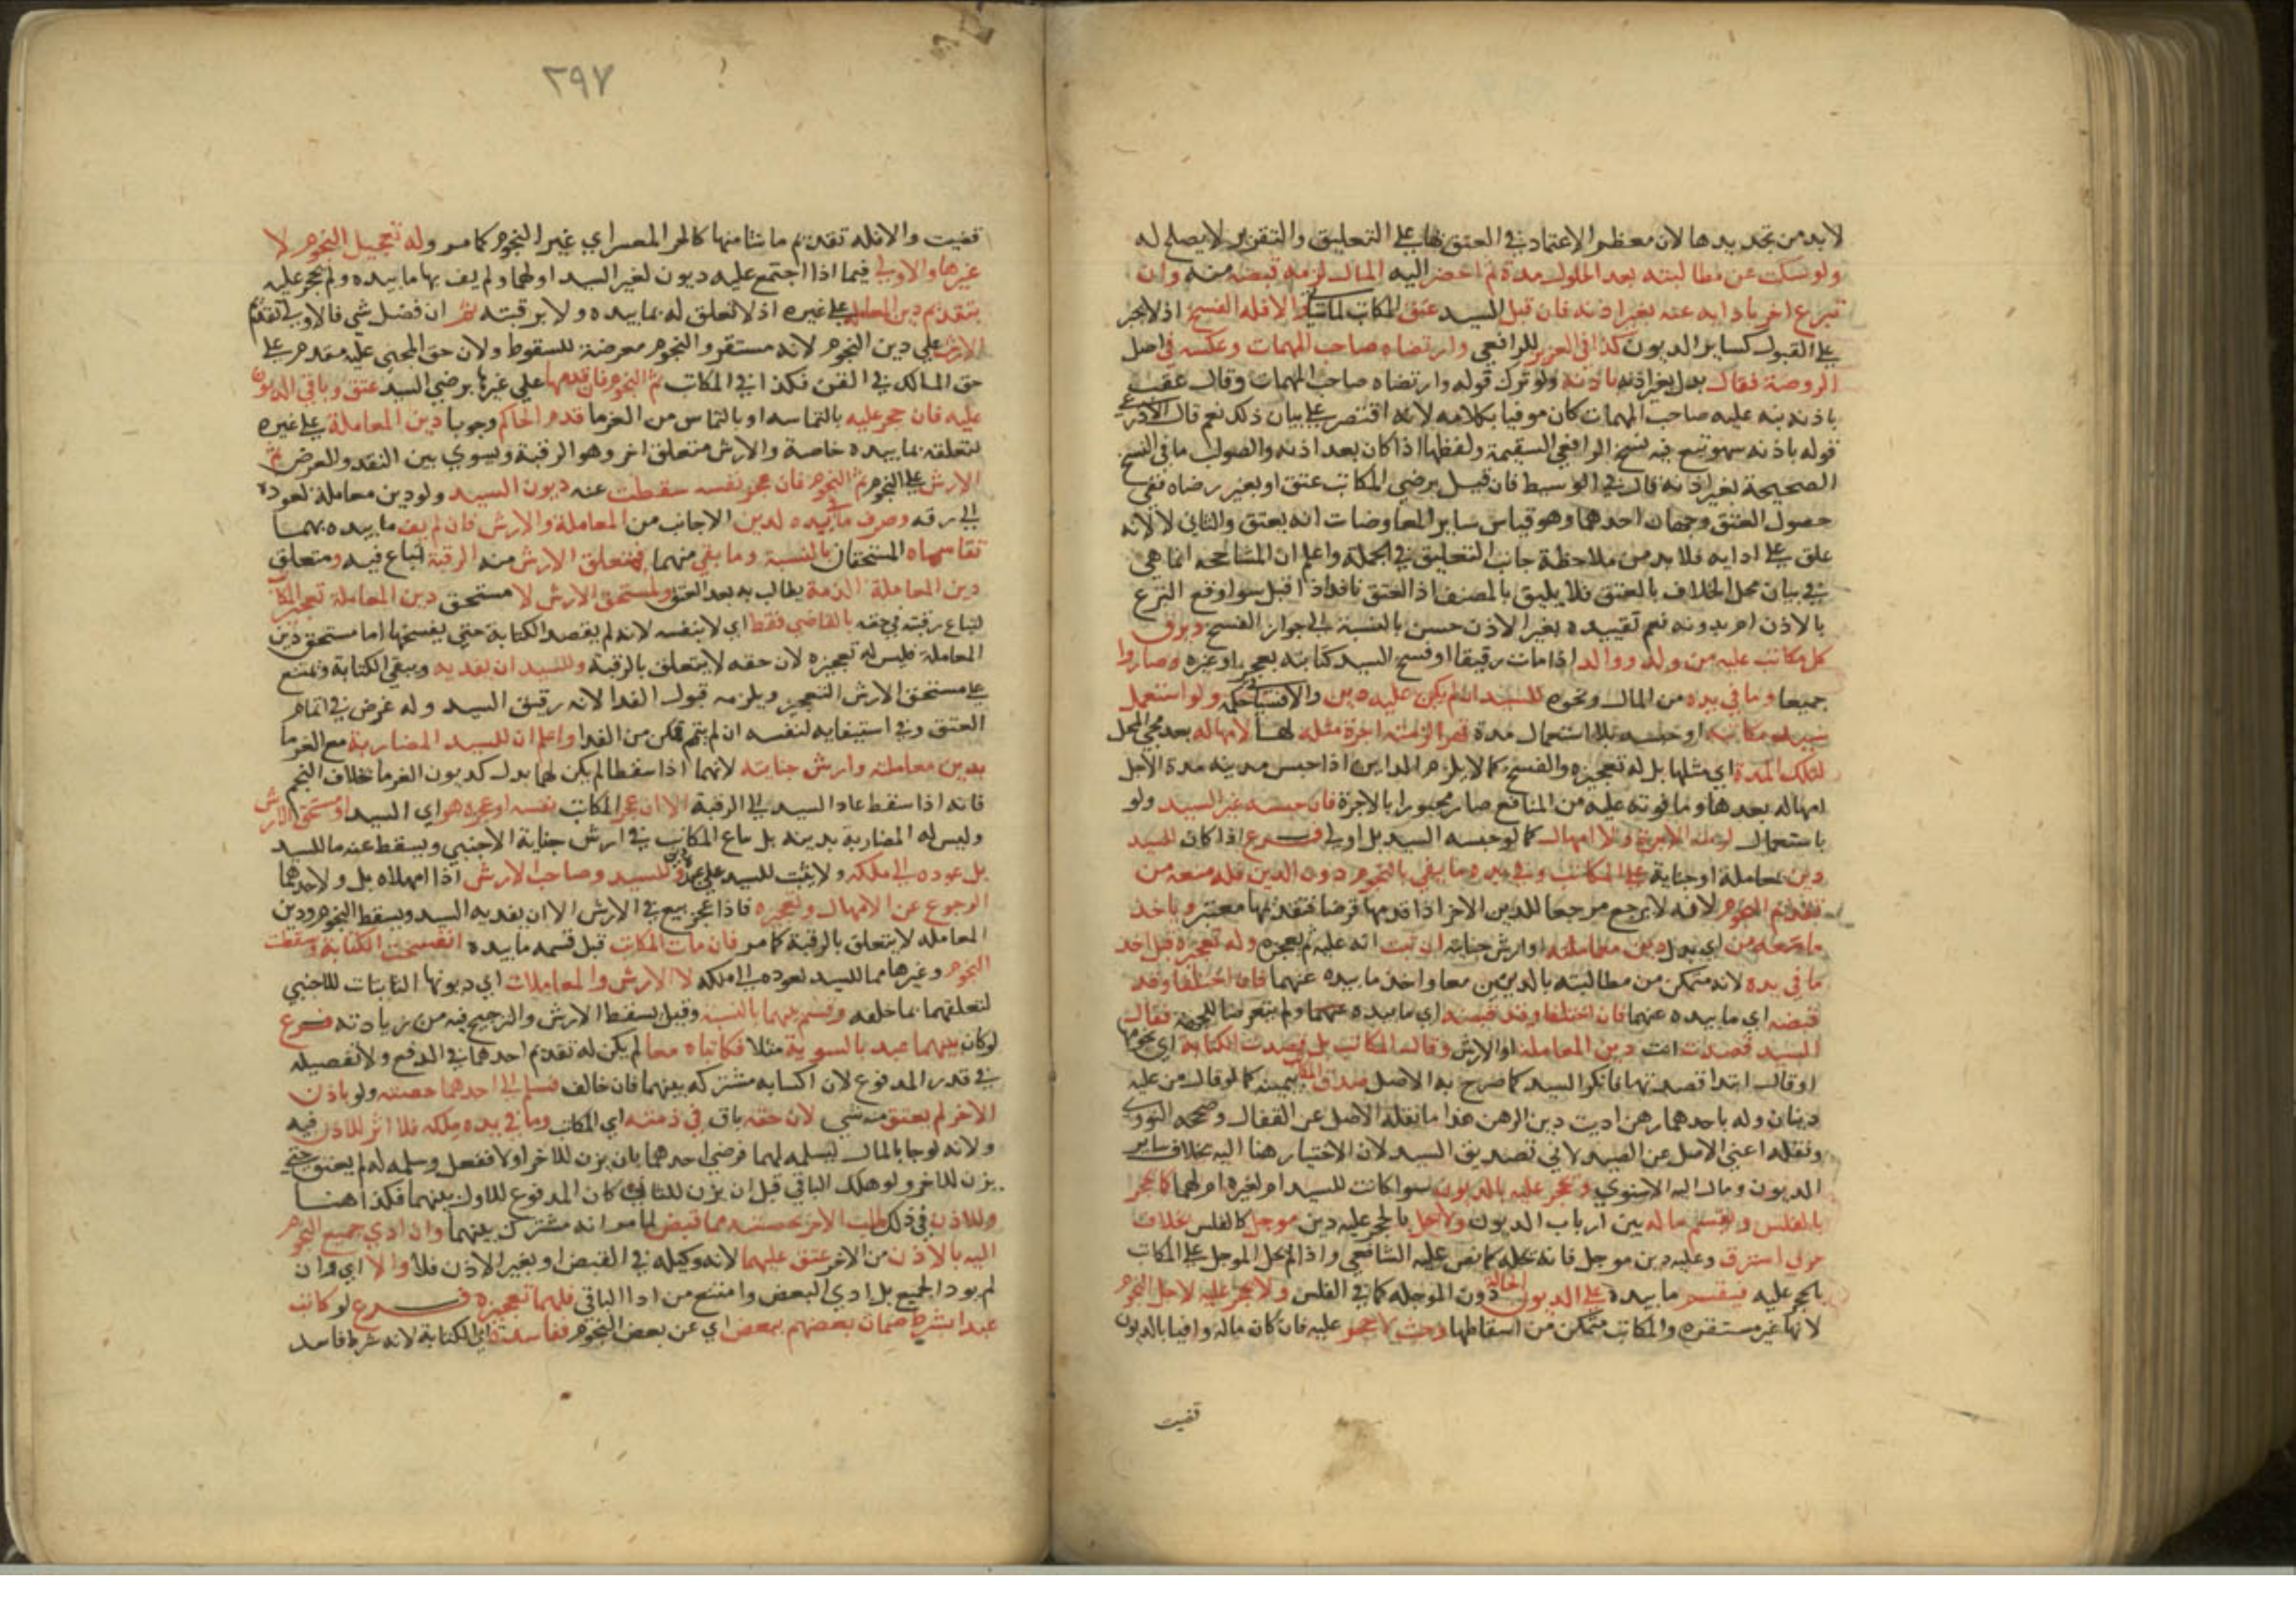 لابد من تجديدها لان معظم الاعتماد في العتق بها على التعليق والتقرير لا يصلح له
ولو سكت عن مطالبته بعد الحلول مدة ثم احضر اليه المال لزمه قبضه منه وان
تبرع اخر بادايه عنه بغير اذنه فان قبل السيد عتق المكاتب والا فله الفسخ اذ لا يجبر
على القبول كساير الديون كذا في العزيز للرافعي وارتضاه صاحب المهمات وعكسه في اصل
الروضة فقال بدل بغير اذنه باذنه ولو ترك قوله وارتضاه صاحب المهمات وقال عقب
باذنه نبه عليه صاحب المهمات كان موفيا بكلامه لانه اقتصر على بيان ذلك نعم قال الاذرعي
قوله باذنه سهو تبع فيه نسخ الرافعي السقيمة ولفظها اذا كان بعد اذنه والصواب ما في النسخ
الصحيحة بغير اذنه قال في الوسيط فان قبل برضي المكاتب عتق او بغير رضاه ففي
حصول العتق وجهان احدهما وهو قياس ساير المعاوضات انه يعتق والثاني لا لانه
علق على ادايه فلا بد من ملاحظة جانب التعليق في الجملة واعلم ان المشاححه انما هي
في بيان محل الخلاف بالعتق فلا يليق بالمصنف اذ العتق نافذ اذا قبل سوا وقع التبرع
بالاذن ام بدونه نعم تقييده بغير الاذن حسن بالنسبة الى جواز الفسخ ويرق
كل مكاتب عليه من ولد ووالد اذا مات رقيقا او فسخ السيد كتابته بعجز او غيره وصاروا
جميعا وما في يده من المال ونحوه للسيد ان لم يكن عليه دين والا فسياتي حكمه ولو استعمل
سيد مكاتبه او حبسه بلا استعمال مدة قهرا لزمته اجرة مثله لها لا امهاله بعد مجي المحل
لتلك المدة اي مثلها بل له تعجيزه والفسخ كما لا يلزم المداين اذا حبس مدينه مدة الاجل
امهاله بعدها وما فوته عليه من المنافع صار مجبورا بالاجرة فان حبسه غير السيد ولو
باستعمال لزمته الاجرة ولا امهال كما لو حبسه السيد بل اولى فرع اذا كان للسيد
دين معاملة او جناية على المكاتب وفي يده ما يفي بالنجوم دون الدين فله منعه من
تقديم النجوم لانه لا يرجع مرجعا للدين الاخر اذا قدمها فرضا فتقديمها معتبر وياخذ
ما معه من اي بدل دين معاملته او ارش جنايته ان ثبت انه عليه ثم يعجزه وله تعجيزه قبل اخذ
ما في يده لانه متمكن من مطالبته بالدينين معا واخذ ما بيده عنهما فان اختلفا وقد
قبضه اي ما بيده عنهما فان اختلفا وقد قبضه اي ما بيده عنهما ولم يتعرضا للجهة فقال
السيد قصدت انت دين المعاملة او الارش وقال المكاتب بل قصدت الكتابة اي نجومها
او قال ابتدا قصدتها فانكر السيد كما صرح به الاصل صدق المكاتب بيمينه كما لو قال من عليه
دينان وله باحدهما رهن اديت دين الرهن هذا ما نقله الاصل عن القفال وصححه النووي
ونقله اعني الاصل عن الصيدلاني تصديق السيد لان الاختيار هنا اليه بخلاف ساير
الديون ومال اليه الاسنوي وحجر عليه بالديون سوا كانت للسيد ام لغيره ام لهما كالحجر
بالفلس ويقسم ماله بين ارباب الديون ولا يحل بالحجر عليه دين موجل كالفلس بخلاف
حربي استرق وعليه دين موجل فانه يحل كما نص عليه الشافعي واذا لم يحل الموجل على المكاتب
بالحجر عليه فيقسم ما بيده على الديون الحالة دون الموجله كما في الفلس ولا يحجر عليه لاجل النجوم
لانها غير مستقره والمكاتب متمكن من اسقاطها وحيث لا حجر عليه فان كان ماله وافيا بالديون
قضيت
٢٩٧
قضيت والا فله تقديم ما شا منها كالحر المعسر اي غير النجوم كما مر وله تعجيل النجوم لا
غيرها والاولى فيما اذا اجتمع عليه ديون لغير السيد او لهما ولم يف بها ما بيده ولم يحجر عليه
بتقديم دين المعاملة على غيره اذ لا تعلق له بما بيده ولا برقبته ثم ان فضل شي فالاولى تقديم
الارش على دين النجوم لانه مستقر والنجوم معرضة للسقوط ولان حق المجني عليه مقدم على
حق المالك في القن فكذا في المكاتب ثم النجوم فان قدمها على غيرها برضي السيد عتق وباقي الديون
عليه فان حجر عليه بالتماسه او بالتماس من الغرما قدم الحاكم وجوبا دين المعاملة على غيره
لتعلقه بما بيده خاصة والارش متعلق اخر وهو الرقبة ويسوي بين النقد والعرض ثم
الارش على النجوم ثم النجوم فان عجز نفسه سقطت عنه ديون السيد ولو دين معاملة لعوده
الى رقه وصرف ما في يده لدين الاجانب من المعاملة والارش فان لم يف ما بيده بهما
تقاسماه المستحقان بالنسبة وما بقي منهما فمتعلق الارش منه الرقبة تباع فيه ومتعلق
دين المعاملة الذمة يطالب به بعد العتق ولمستحق الارش لا مستحق دين المعاملة تعجيز المكاتب
لتباع رقبته في حقه بالقاضي فقط اي لا بنفسه لانه لم يقصد الكتابة حتى يفسخها اما مستحق دين
المعاملة فليس له تعجيزه لان حقه لا يتعلق بالرقبة وللسيد ان يفديه ويبقي الكتابة ويمتنع
على مستحق الارش التعجيز ويلزمه قبول الفدا لانه رقيق السيد وله غرض في اتمام
العتق وفي استبقايه لنفسه ان لم يتم تمكن من الفدا واعلم ان للسيد المضاربة مع الغرما
بدين معاملته وارش جنايته لانهما اذا سقطا لم يكن لهما بدل كديون الغرما بخلاف النجم
فانه اذا سقط عاد السيد الى الرقبة الا ان عجز المكاتب نفسه او عجزه هو اي السيد او مستحق الارش
وليس له المضاربة بدينه بل يباع المكاتب في ارش جناية الاجنبي ويسقط عنه ما للسيد
بل عوده الى ملكه ولا يثبت للسيد على عبده دين وللسيد وصاحب الارش اذا امهلاه بل ولاحدهما
الرجوع عن الامهال وتعجيزه فاذا عجز بيع في الارش الا ان يفديه السيد ويسقط النجوم ودين
المعاملة لا يتعلق بالرقبة كما مر فان مات المكاتب قبل قسمه ما بيده انفسخت الكتابة وسقطت
النجوم وغيرها مما للسيد لعوده الى ملكه لا الارش والمعاملات اي ديونها الثابتات للاجنبي
لتعلقهما بما خلفه وقسم بينهما بالنسبة وقيل يسقط الارش والترجيح فيه من زيادته فرع
لو كان بينهما عبد بالسوية مثلا فكاتباه معا لم يكن له تقديم احدهما في الدفع ولا تفضيله
في قدر المدفوع لان اكسابه مشتركه بينهما فان خالف فسلم الى احدهما حصته ولو باذن
الاخر لم يعتق منه شي لان حقه باق في ذمته اي المكاتب وما في يده ملكه فلا اثر للاذن فيه
ولانه لو جا بالمال ليسلمه لهما فرضي احدهما بان يزن للاخر اولا ففعل وسلمه له لم يعتق حتى
يزن للاخر ولو هلك الباقي قبل ان يزن للثاني كان المدفوع للاول بينهما فكذا هنا
وللاذن في ذلك طلب الاخر بحصته مما قبض لما مر انه مشترك بينهما وان ادي جميع النجوم
اليه بالاذن من الاخر عتق عليهما لانه وكيله في القبض او بغير الاذن فلا والا اي وان
لم يود الجميع بل ادي البعض وامتنع من ادا الباقي فلهما تعجيزه فرع لو كاتب
عبدا بشرط ضمان بعضهم بعض اي عن بعض النجوم ففاسدة اي الكتابة لانه شرط فاسد